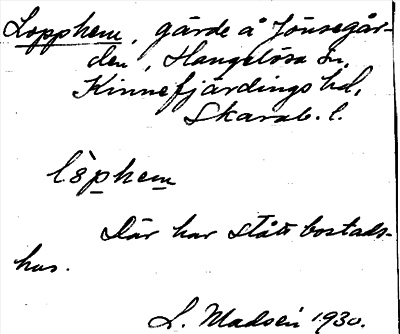 Lopphem, gärde å Jönsegår-
den, Hangelösa sn,
Kinnefjärdings hd,
Skarab. l.
Där har stått bostads-
hus.
L. Madsén 1930.